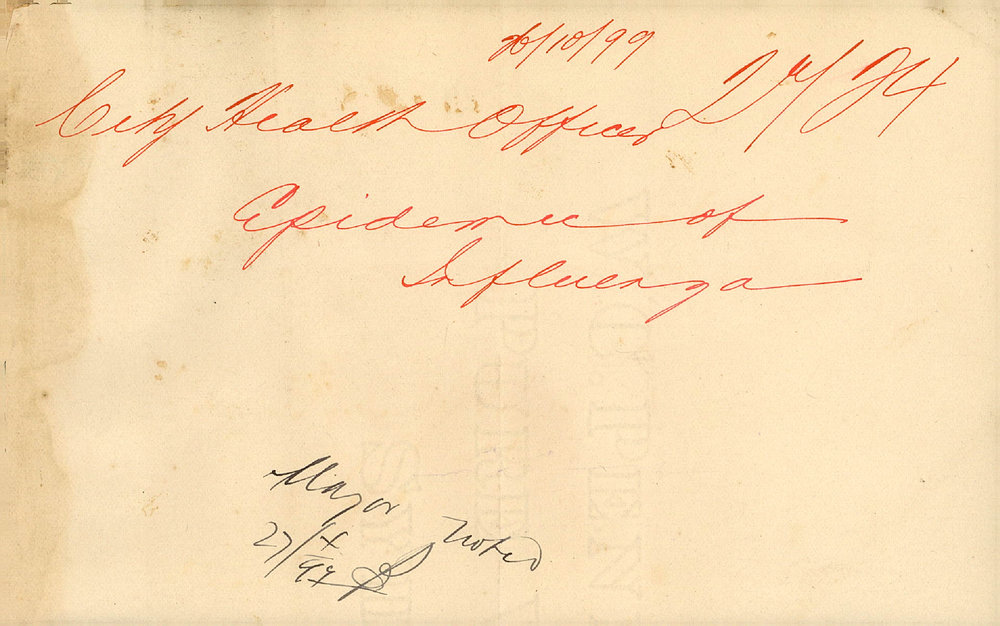 26/10/99
City Health Officer
Epidemic of
Influenza
Mayor noted
27/X
99